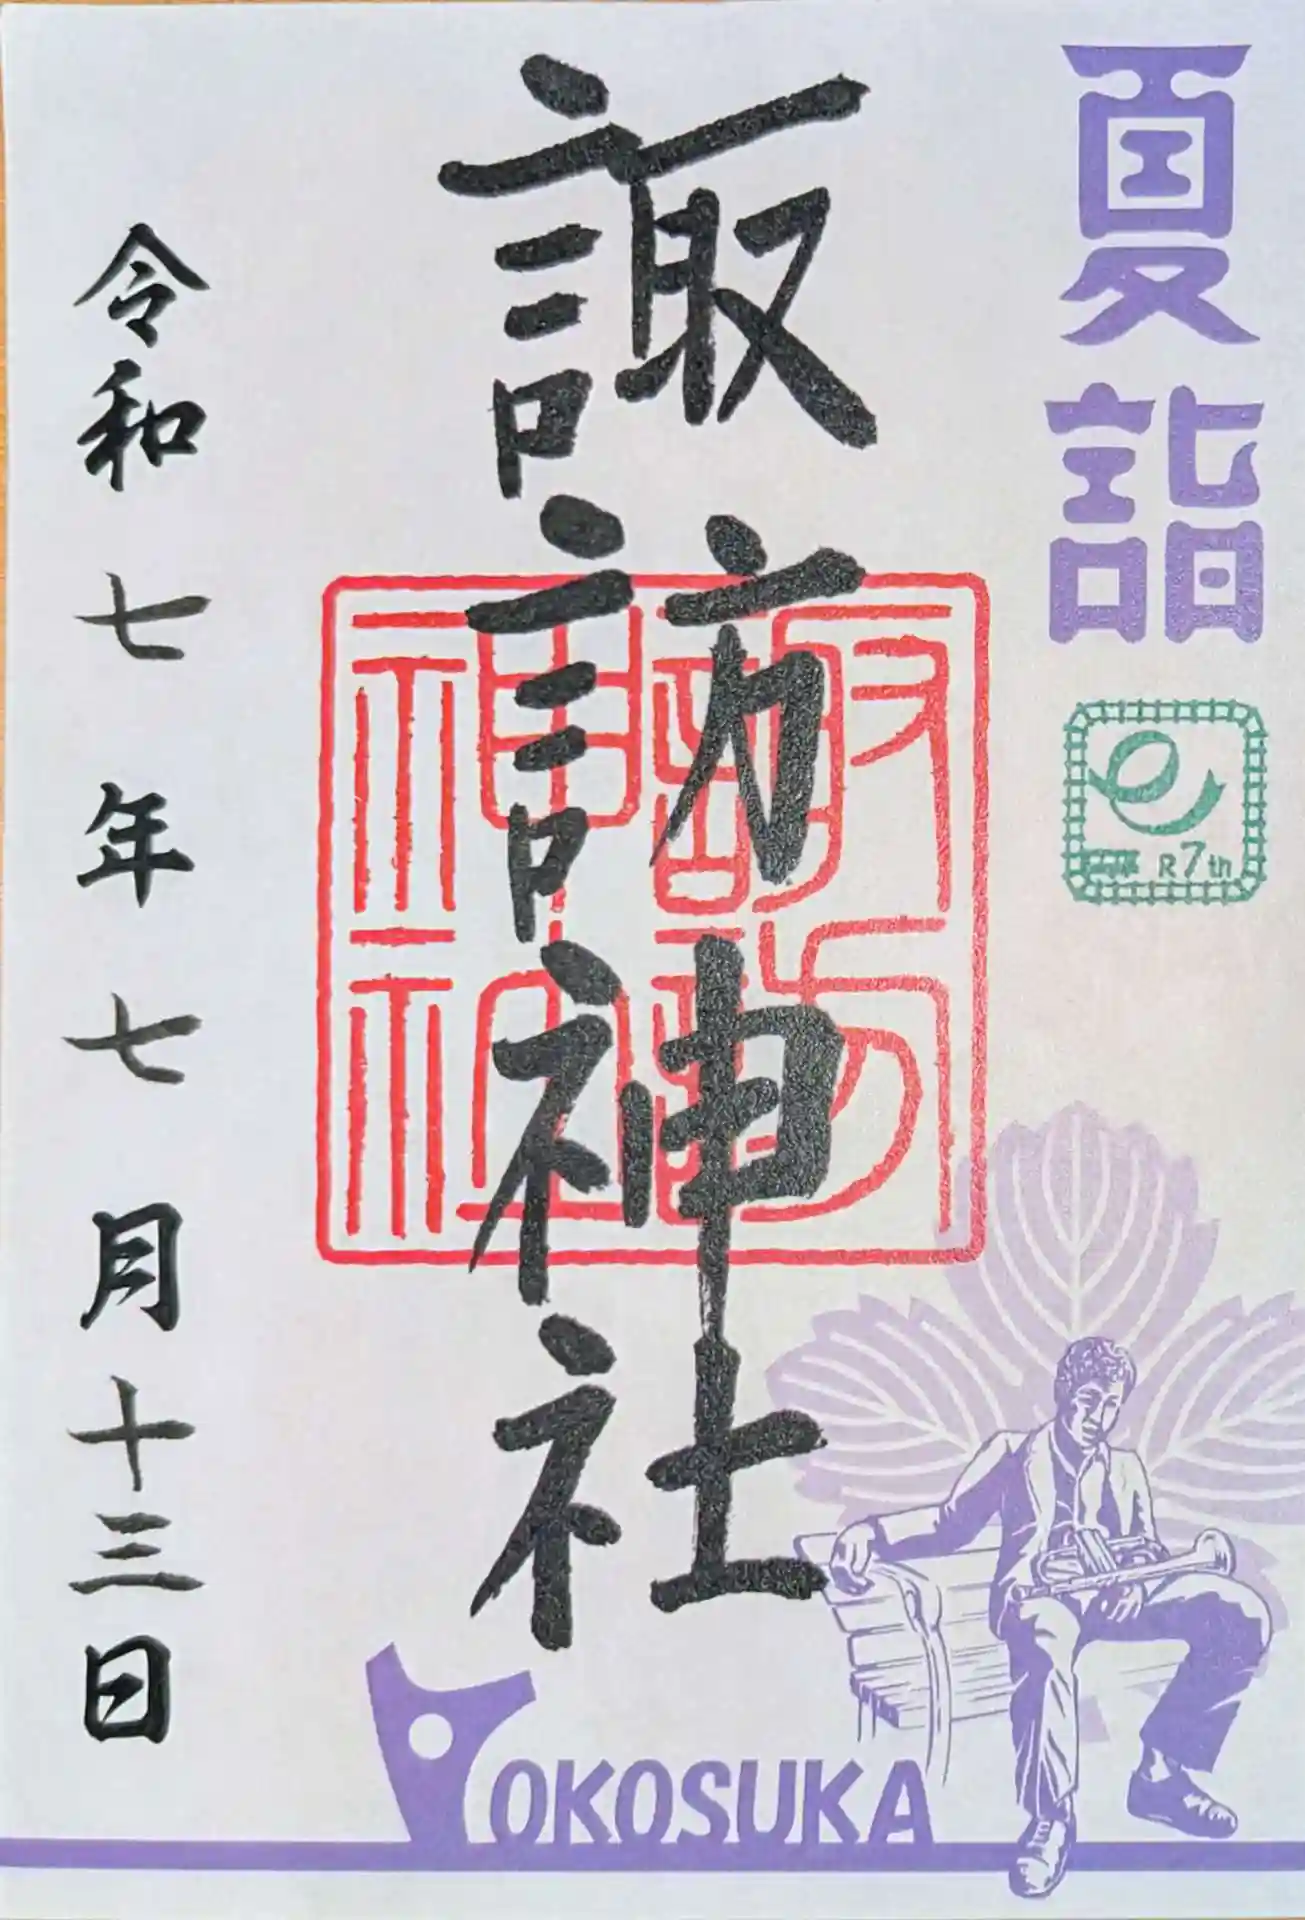 夏詣
R7th
諏訪神社
諏訪神社
令和七年七月十三日
YOKOSUKA